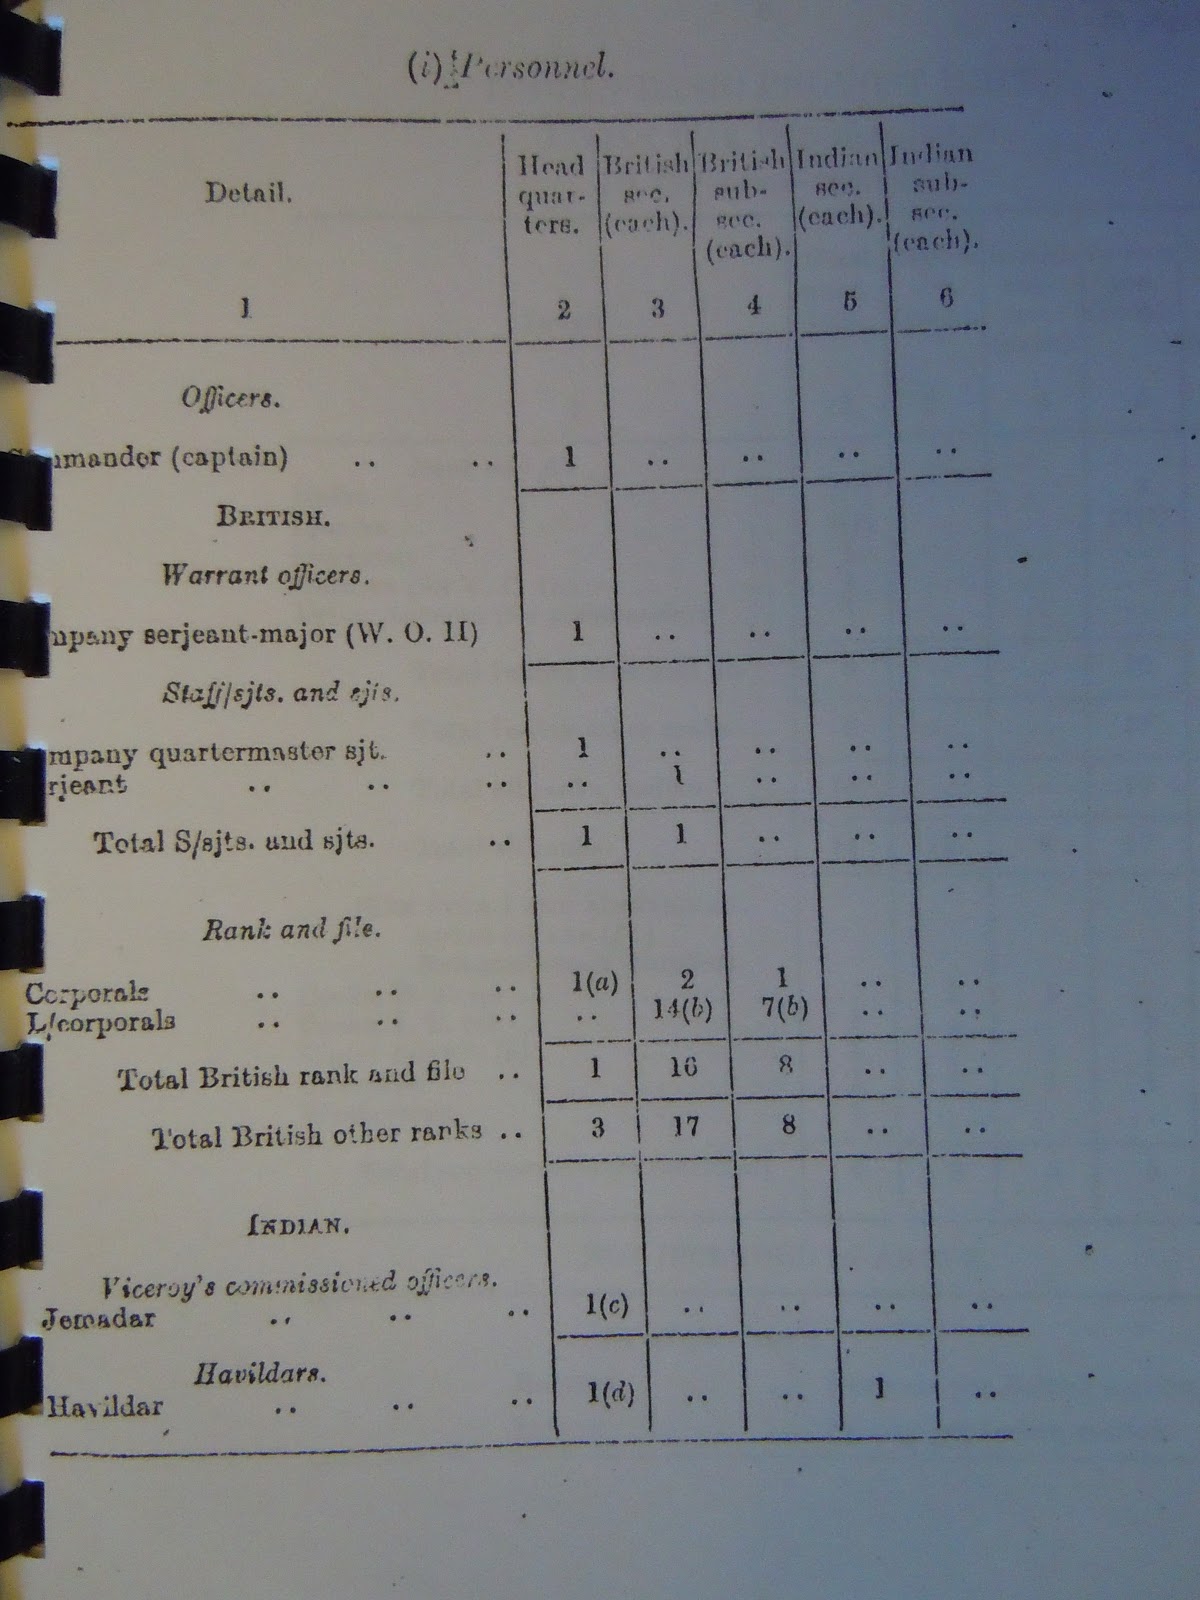 (i) Personnel.
Detail. Head quar- ters. British sec. (each). British sub- sec. (each). Indian sec. (each). Indian sub- sec. (each).
1 2 3 4 5 6
Officers.
mmander (captain) .. .. 1 .. .. .. ..
BRITISH.
Warrant officers.
mpany serjeant-major (W. O. II) 1 .. .. .. ..
Staff/sjts. and sjts.
mpany quartermaster sjt. .. 1 .. .. .. ..
rjeant .. .. .. .. 1 .. .. ..
Total S/sjts. and sjts. .. 1 1 .. .. ..
Rank and file.
Corporals .. .. .. 1(a) 2 1 .. ..
L/corporals .. .. .. .. 14(b) 7(b) .. ..
Total British rank and file .. 1 16 8 .. ..
Total British other ranks .. 3 17 8 .. ..
INDIAN.
Viceroy's commissioned officers.
Jemadar .. .. .. 1(c) .. .. .. ..
Havildars.
Havildar .. .. .. 1(d) .. .. 1 ..